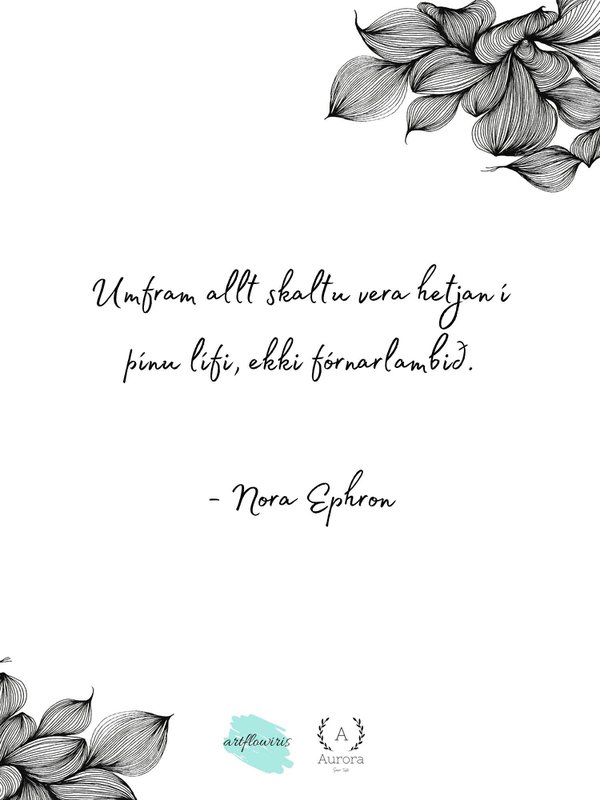 Umfram allt skaltu vera hetjan í
þínu lífi, ekki fórnarlambið.
- Nora Ephron
artflowiris
A
Aurora